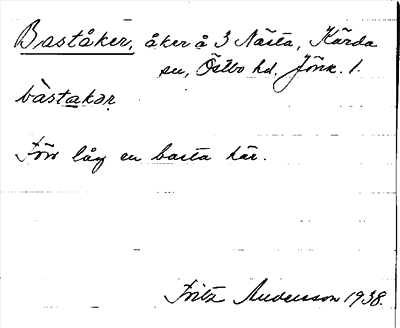 Baståker, åker å 3 Nästa, Kärda
sn, Östbo hd, Jönk. l.
bàstakər
Förr låg en basta här.
Fritz Andersson 1938.